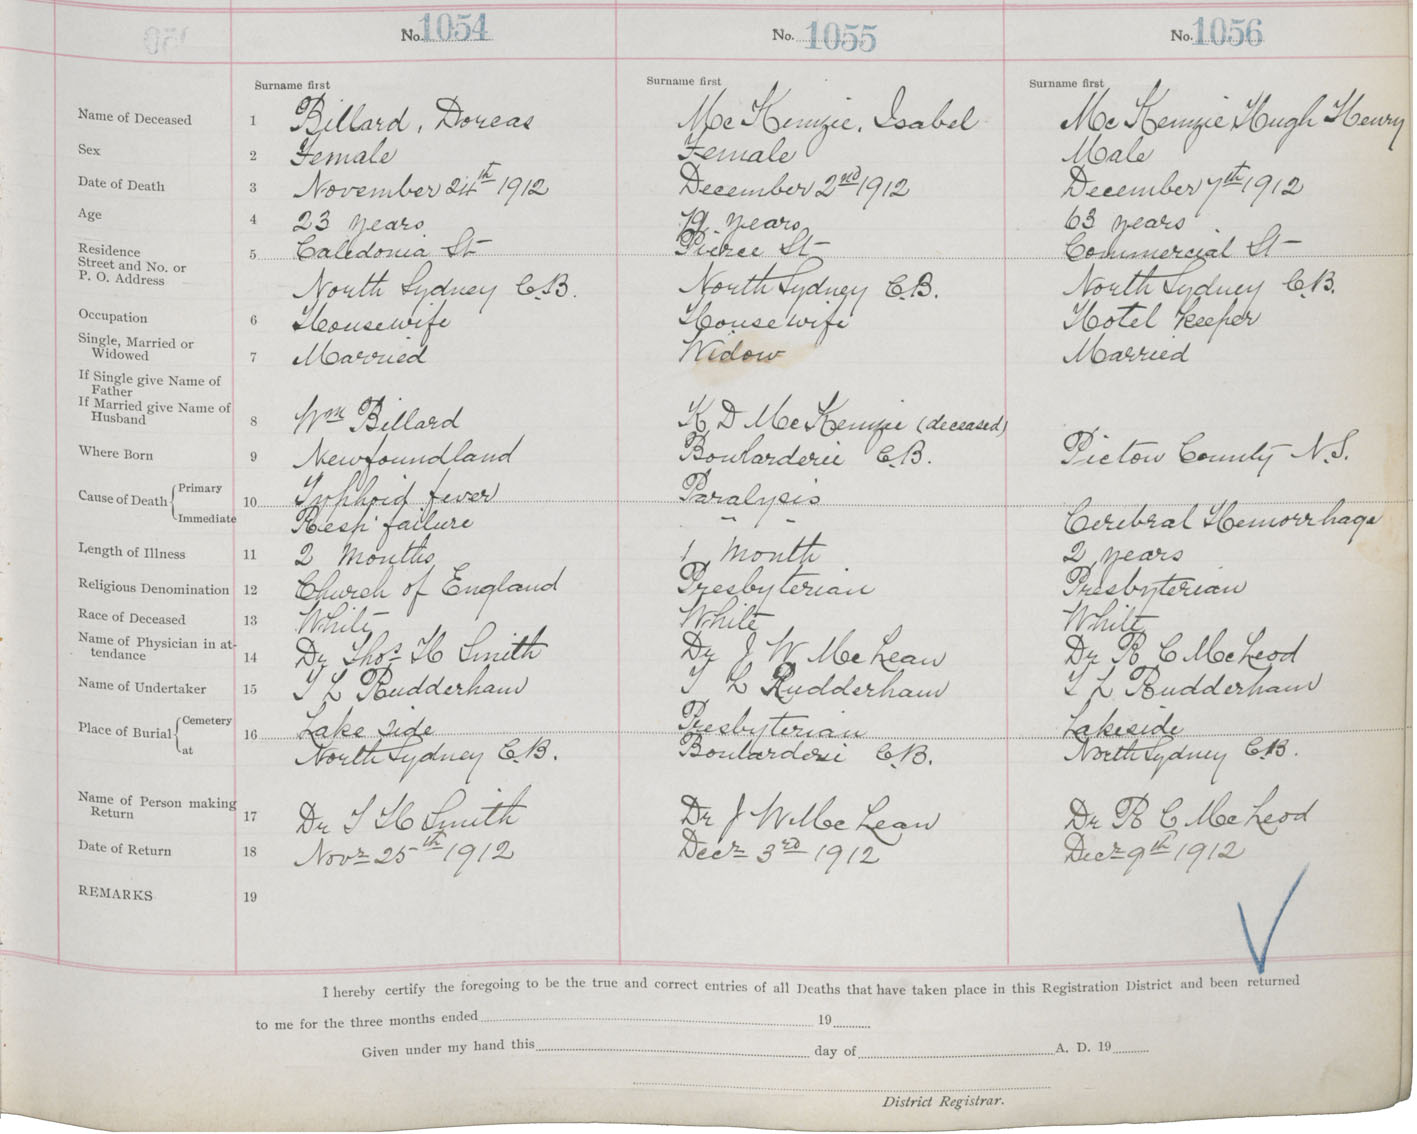 No. 1054 No. 1055 No. 1056
Surname first Surname first Surname first
Name of Deceased 1 Billard, Dorcas McKenzie, Isabel McKenzie Hugh Henry
Sex 2 Female Female Male
Date of Death 3 November 24th 1912 December 2nd 1912 December 7th 1912
Age 4 23 years 79 years 63 years
Residence
Street and No. or 5 Caledonia St Pierce St Commercial St
P. O. Address North Sydney C.B. North Sydney C.B. North Sydney C.B.
Occupation 6 Housewife Housewife Hotel Keeper
Single, Married or
Widowed 7 Married Widow Married
If Single give Name of
Father
If Married give Name of
Husband 8 Wm Billard K D McKenzie (deceased)
Where Born 9 Newfoundland Boularderie C.B. Pictou County N.S.
Cause of Death Primary 10 Typhoid fever Paralysis
Immediate Resp. failure " " Cerebral Hemorrhage
Length of Illness 11 2 months 1 month 2 years
Religious Denomination 12 Church of England Presbyterian Presbyterian
Race of Deceased 13 White White White
Name of Physician in at-
tendance 14 Dr Thos H Smith Dr J W McLean Dr R C McLeod
Name of Undertaker 15 T L Rudderham T L Rudderham T L Rudderham
Place of Burial Cemetery 16 Lake side Presbyterian Lakeside
at North Sydney C.B. Boularderie C.B. North Sydney C.B.
Name of Person making
Return 17 Dr T H Smith Dr J W McLean Dr R C McLeod
Date of Return 18 Novr 25th 1912 Decr 3rd 1912 Decr 9th 1912
REMARKS 19
I hereby certify the foregoing to be the true and correct entries of all Deaths that have taken place in this Registration District and been returned
to me for the three months ended 19
Given under my hand this day of A. D. 19
District Registrar.